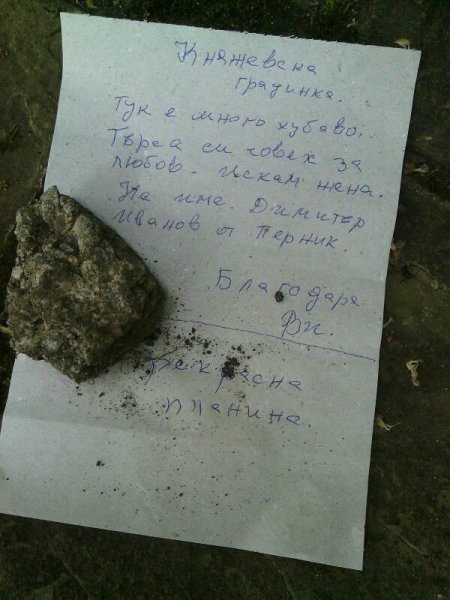 Княжевска
градинка.
Тук е много хубаво..
Търса си човек за
любов. Искам жена.
На име. Димитър
Иванов от Перник.
Благодаря
Ви.
Прекрасна
планина.